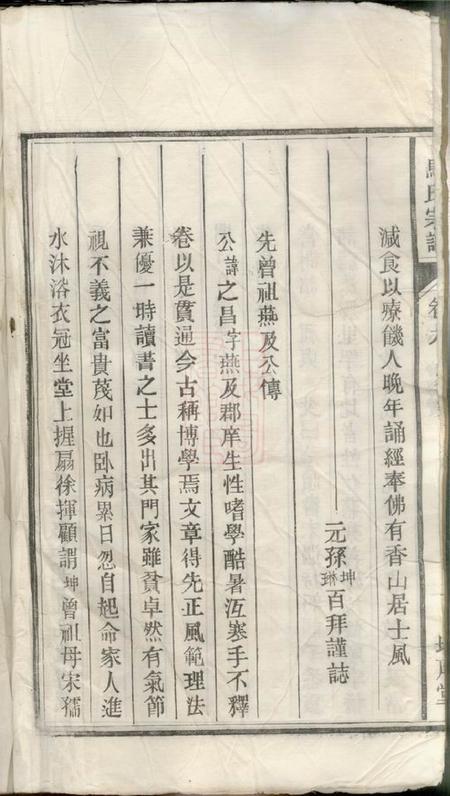 氏宗譜
減食以療饑人晚年誦經奉佛有香山居士風
元孫坤 百拜謹誌
先曾祖燕及公傳
公諱之昌字燕及郡庠生性嗜學酷暑沍寒手不釋
卷以是貫通今古稱博學焉文章得先正風範理法
兼優一時讀書之士多出其門家雖貧卓然有氣節
視不義之富貴蔑如也臥病累日忽自起命家人進
水沐浴衣冠坐堂上握扇徐揮顧謂坤曾祖母宋孺